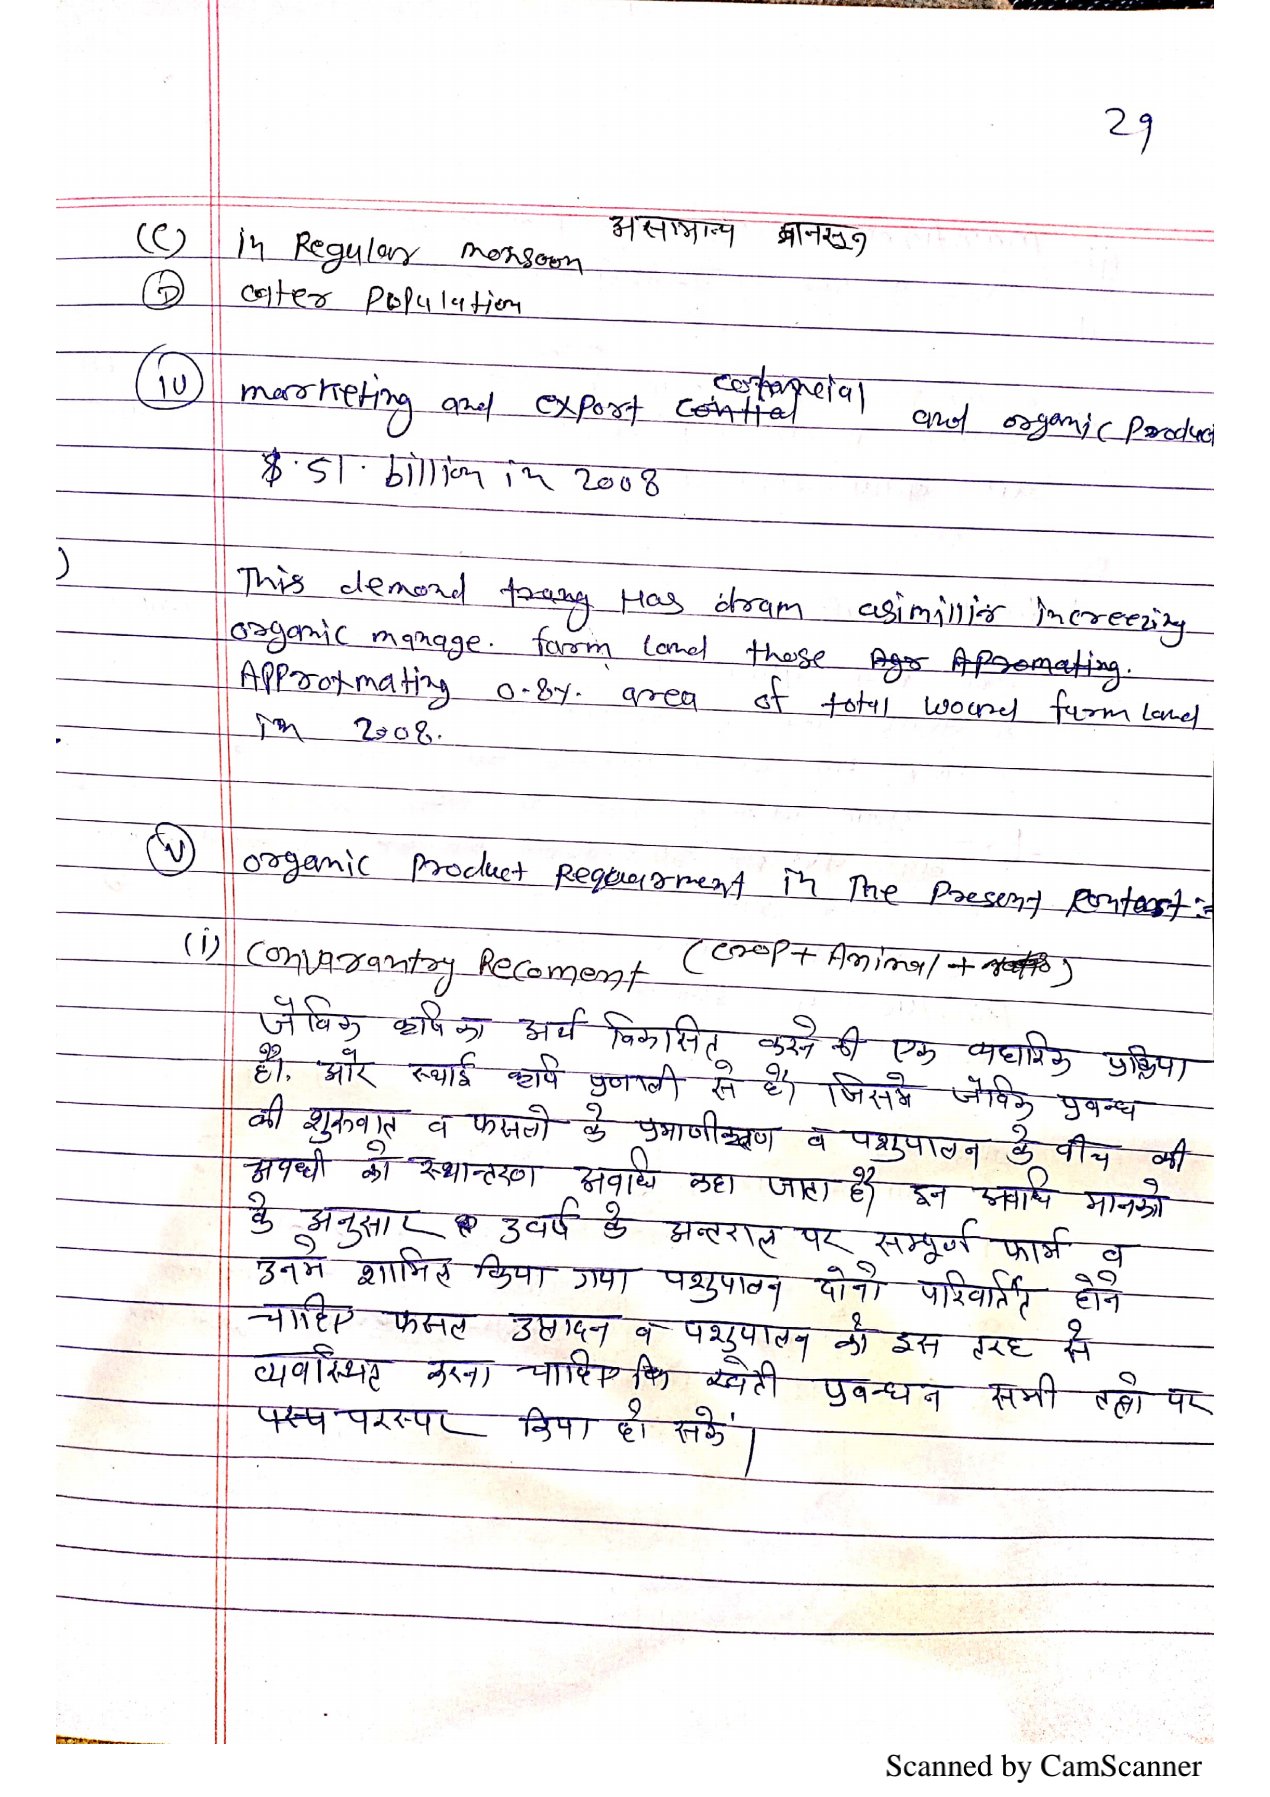 29
(C) in Regular monsoon असामान्य मानसून
(D) cater Population
(iv) marketing and export comancial and organic Product
$.51. billion in 2008
)
This demond trang Has dram asimillir increezing
organic manage. farm land those Agr Appromating.
APProxmating 0.8%. area of total woard farm land
in 2008.
(v) organic Product Requarment in The Present Contast :-
(i) Convarantry Recoment (crop + Animal +
जैविक कृषि का अर्थ विकासित करने की एक व्यहारिक प्रक्रिया
है। और स्थाई कृषि प्रणाली से है। जिसमे जैविक प्रबन्ध
की शुरुवात व फसलो के प्रमाणीकरण व पशुपालन के बीच की
अवधी को स्थान्तरण अवधि कहा जाता है। इन अवधि मानको
के अनुसार 3 वर्ष के अन्तराल पर सम्पूर्ण फार्म व
उनमे शामिल किया गया पशुपालन दोनो परिवर्तित होने
चाहिए फसल उत्पादन व पशुपालन को इस तरह से
व्यवस्थित करना चाहिए कि खेती प्रबन्धन सभी तत्वो पर
परस्पर किया हो सके।
Scanned by CamScanner